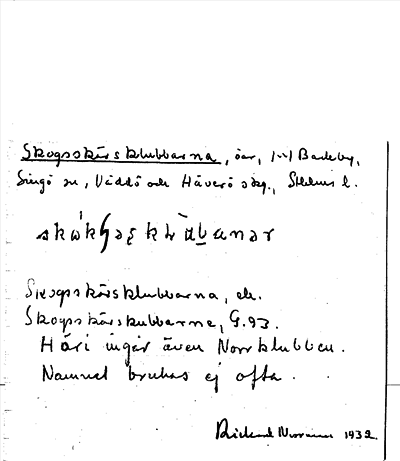 Skogsskärsklubbarna, öar, /v/ Backby,
Singö sn, Väddö och Häverö skg., Sthlms l.
Skogsskärsklubbarna, ek.
Skogsskärskubbarne, G.93.
Häri ingår även Norrklubben.
Namnet brukas ej ofta.
Rickard 1932.